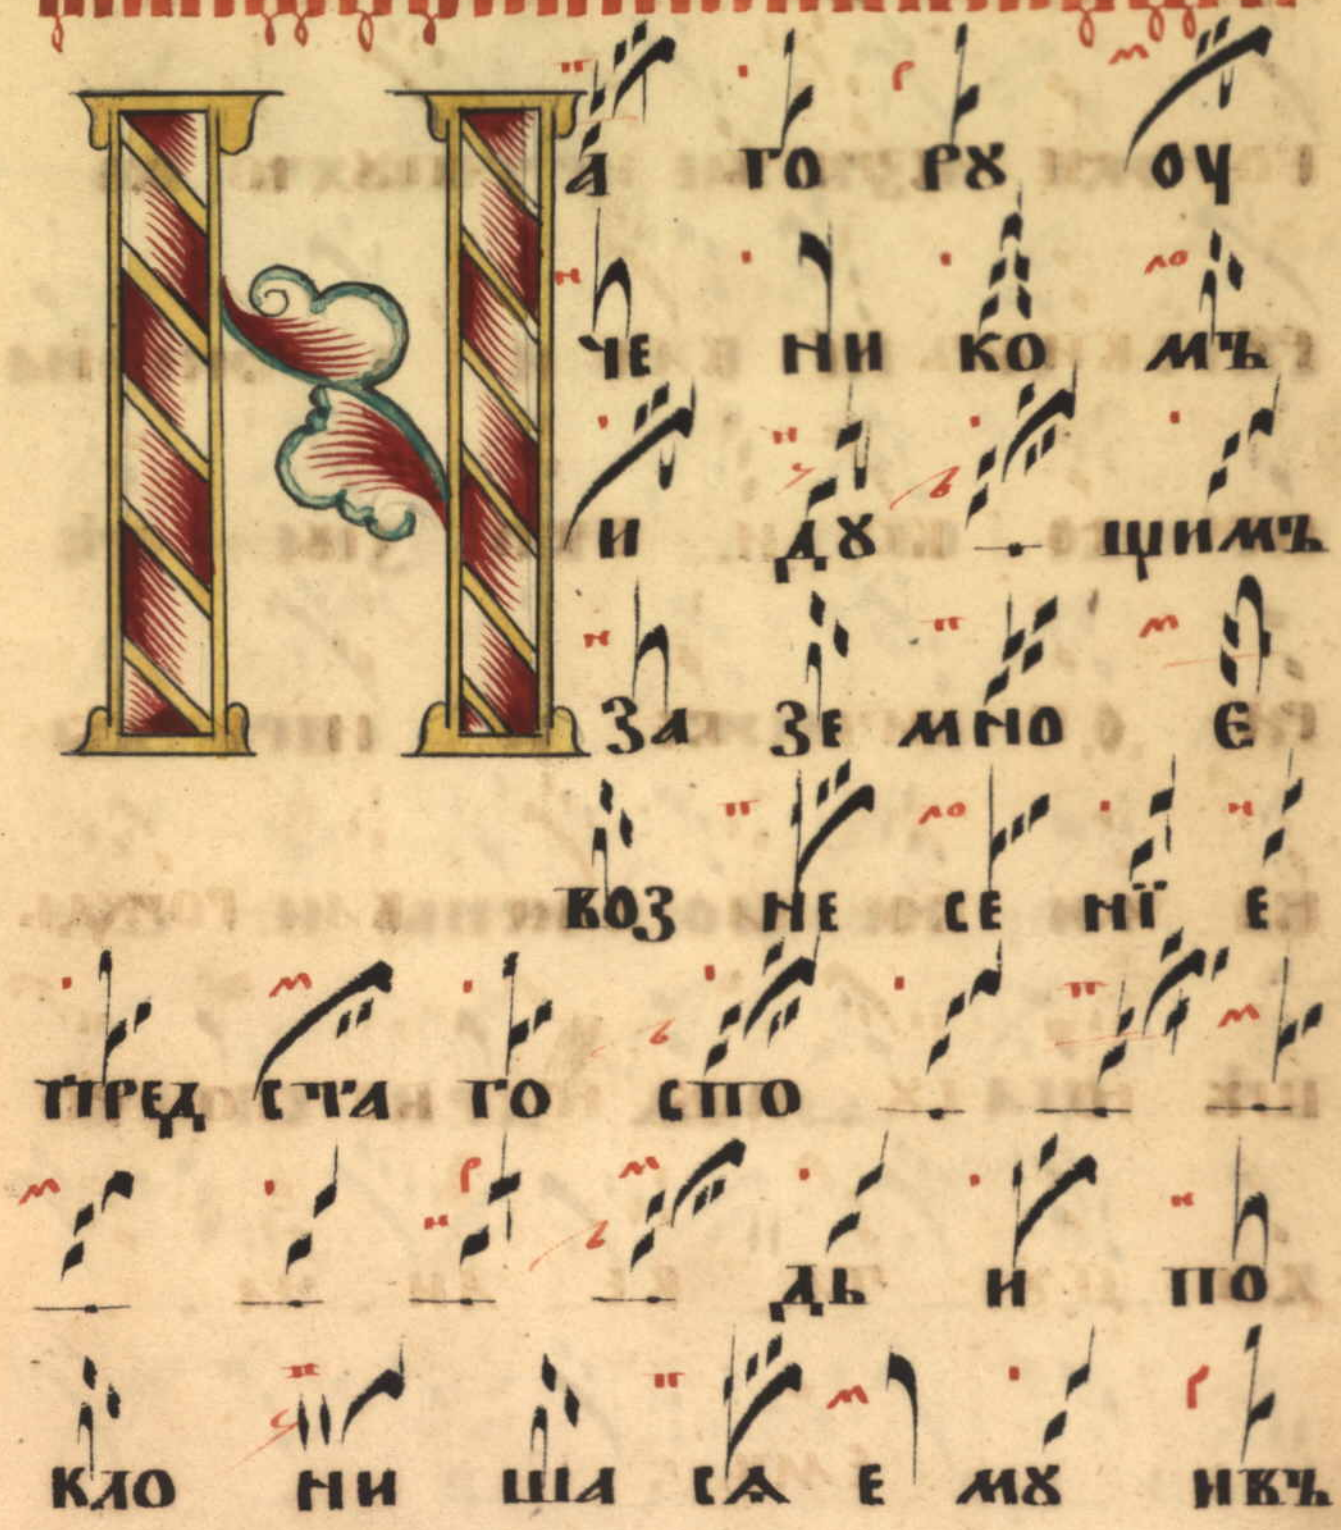 На го рꙋ оу
че ни ко мъ
и дꙋ щимъ
за зе мно є
воз не се нїе
пред ста го спо
дь и по
кло ни ша сѧ е мꙋ ивъ